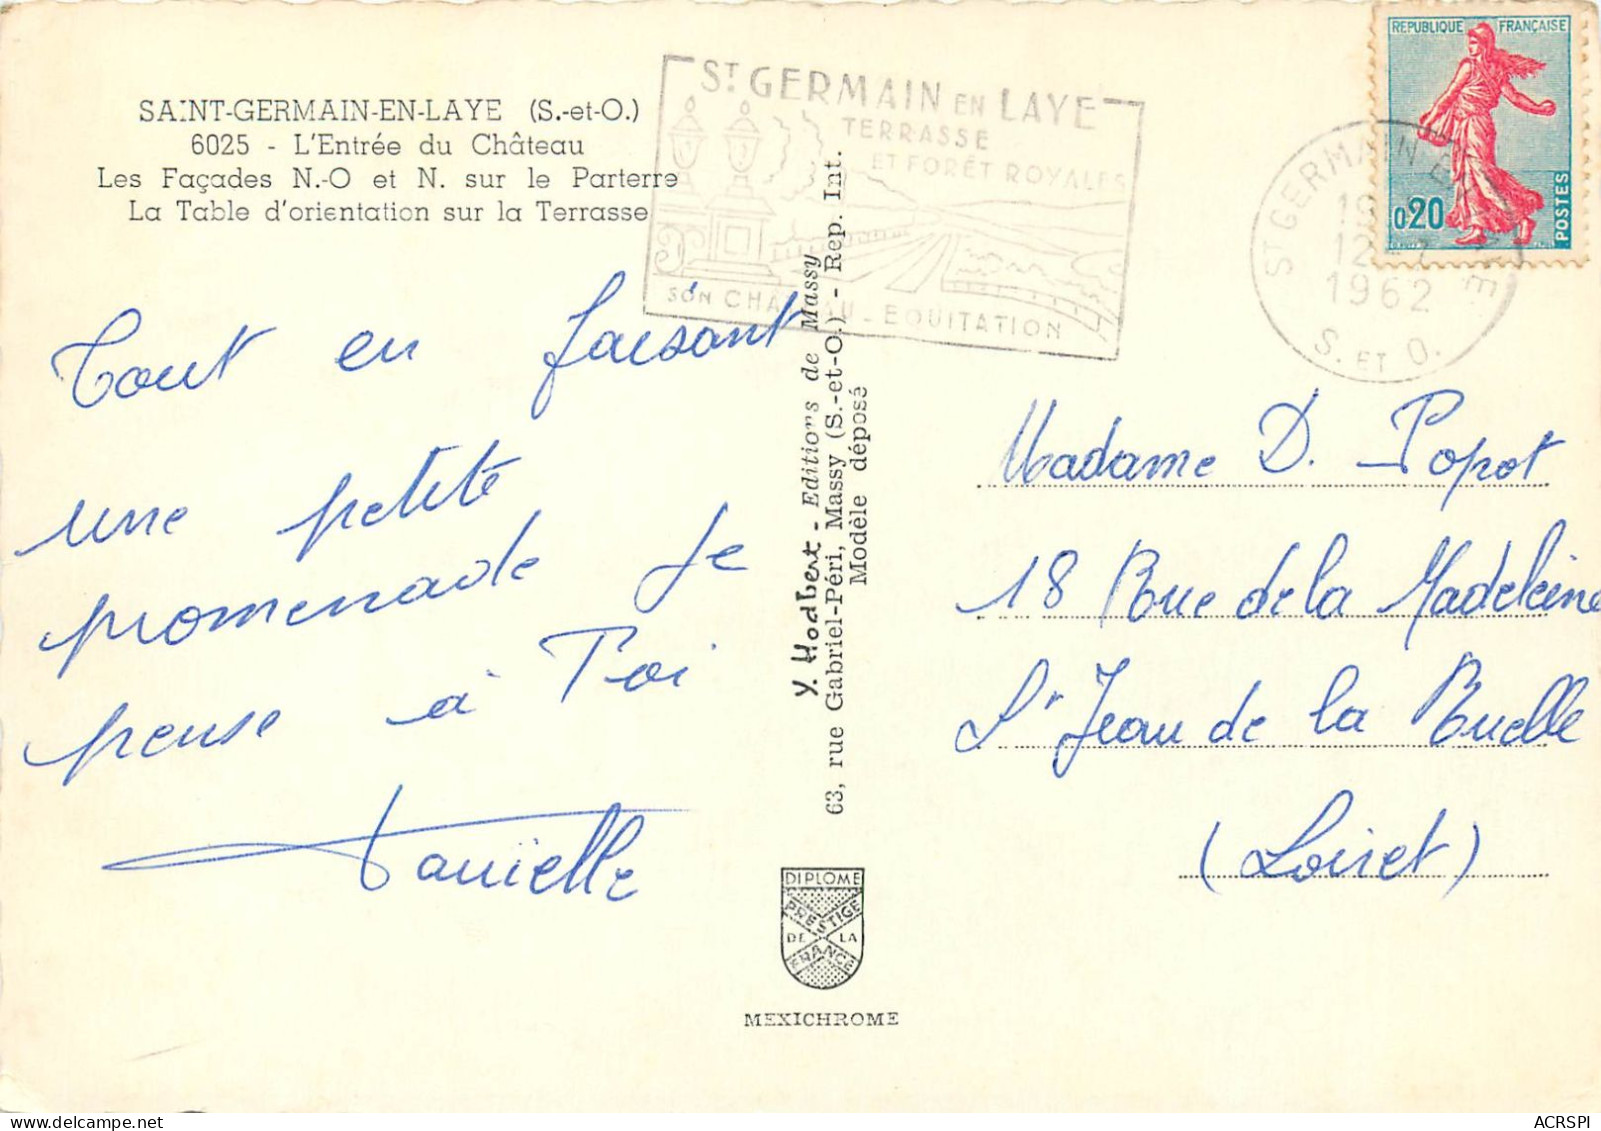 SAINT-GERMAIN-EN-LAYE (S.-et-O.)
6025 - L'Entrée du Château
Les Façades N.-O et N. sur le Parterre
La Table d'orientation sur la Terrasse
ST GERMAIN EN LAYE
TERRASSE
ET FORÊT ROYALES
SON CHATEAU - EQUITATION
REPUBLIQUE FRANÇAISE
0,20
POSTES
ST GERMAIN EN LAYE
12
1962
S. ET O.
Tout en faisant
une petite
promenade je
pense à Toi
Danielle
Y. Hodbert - Editions de Massy
63, rue Gabriel-Péri, Massy (S.-et-O.) - Rep. Int.
Modèle déposé
DIPLOME
PRESTIGE
DE LA
FRANCE
MEXICHROME
Madame D. Popot
18 Rue de la Madeleine
St Jean de la Ruelle
(Loiret)
ACRSPI